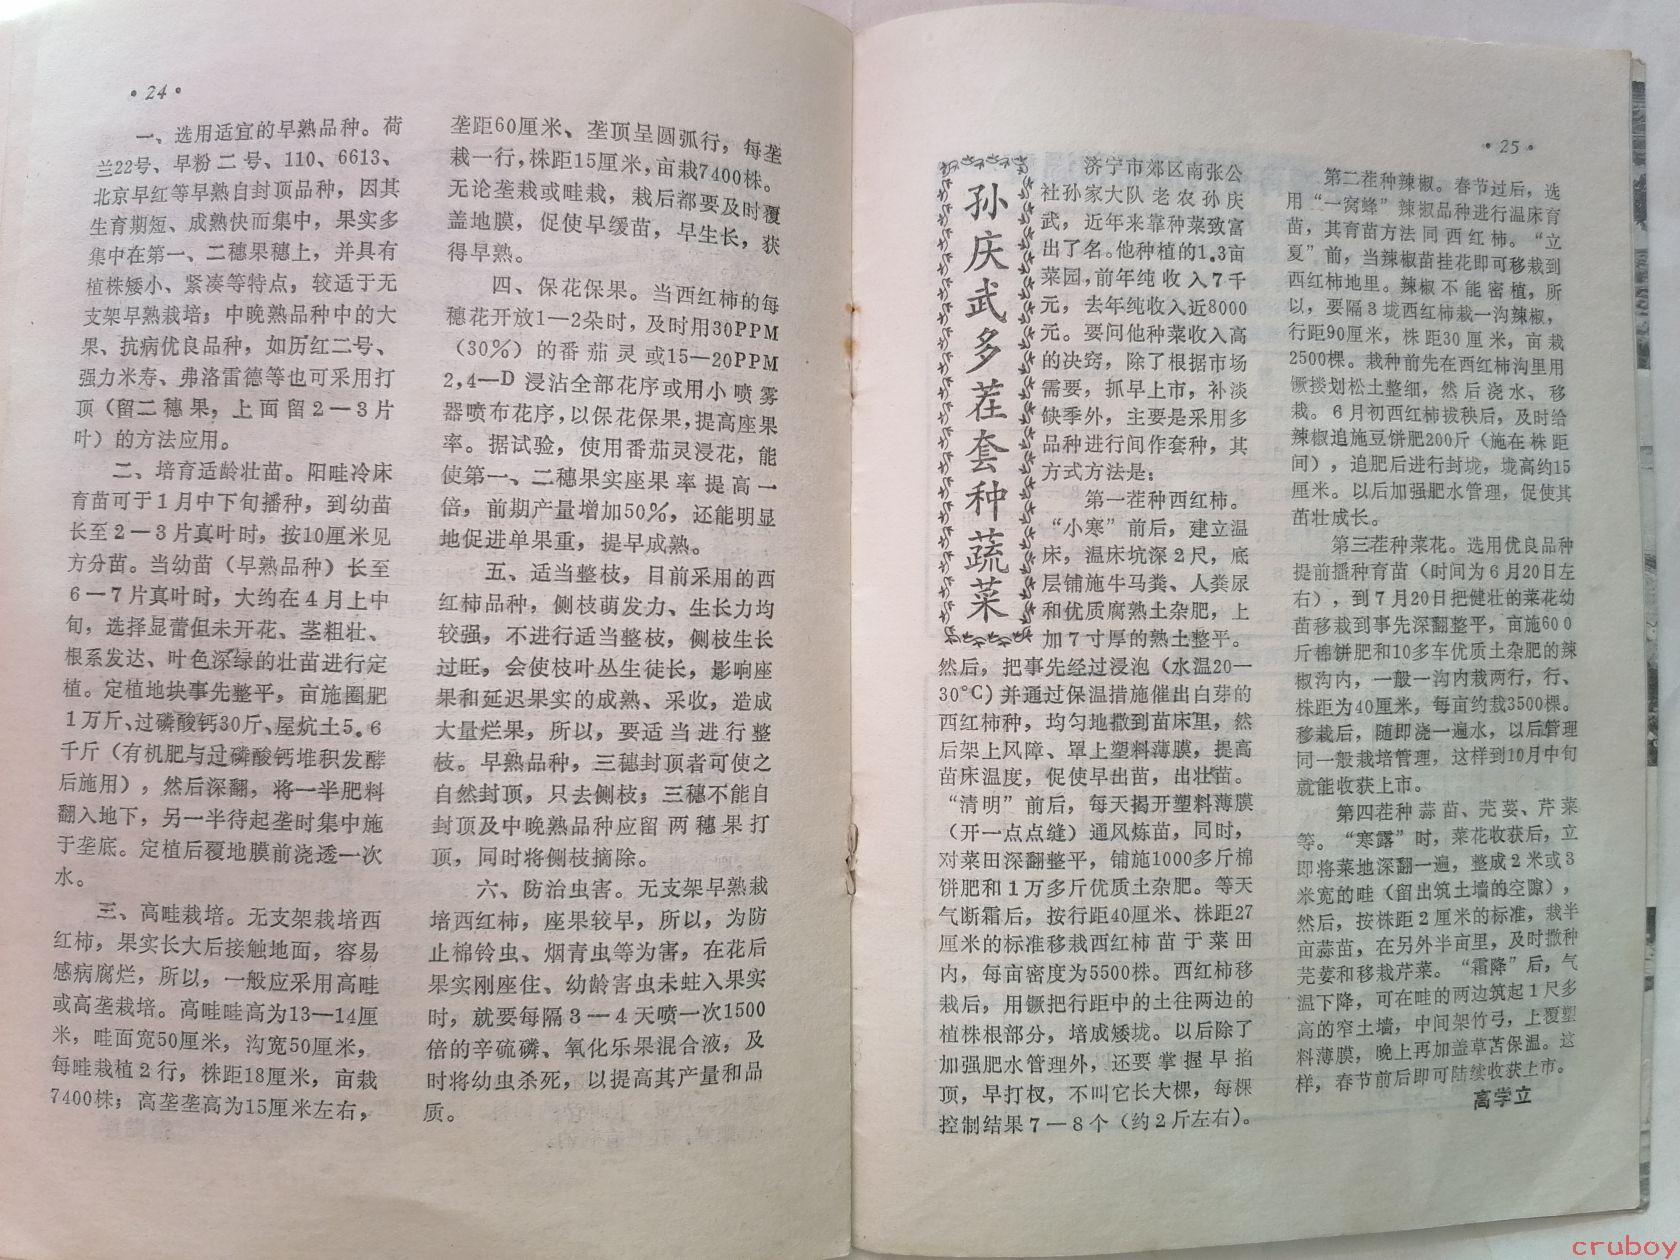 • 24 •
一、选用适宜的早熟品种。荷
兰22号、早粉二号、110、6613、
北京早红等早熟自封顶品种，因其
生育期短、成熟快而集中，果实多
集中在第一、二穗果穗上，并具有
植株矮小、紧凑等特点，较适于无
支架早熟栽培；中晚熟品种中的大
果、抗病优良品种，如历红二号、
强力米寿、弗洛雷德等也可采用打
顶（留二穗果，上面留2—3片
叶）的方法应用。
二、培育适龄壮苗。阳畦冷床
育苗可于1月中下旬播种，到幼苗
长至2—3片真叶时，按10厘米见
方分苗。当幼苗（早熟品种）长至
6—7片真叶时，大约在4月上中
旬，选择显蕾但未开花、茎粗壮、
根系发达、叶色深绿的壮苗进行定
植。定植地块事先整平，亩施圈肥
1万斤、过磷酸钙30斤、屋炕土5.6
千斤（有机肥与过磷酸钙堆积发酵
后施用），然后深翻，将一半肥料
翻入地下，另一半待起垄时集中施
于垄底。定植后覆地膜前浇透一次
水。
三、高畦栽培。无支架栽培西
红柿，果实长大后接触地面，容易
感病腐烂，所以，一般应采用高畦
或高垄栽培。高畦畦高为13—14厘
米，畦面宽50厘米，沟宽50厘米，
每畦栽植2行，株距18厘米，亩栽
7400株；高垄垄高为15厘米左右，
垄距60厘米、垄顶呈圆弧行，每垄
栽一行，株距15厘米，亩栽7400株。
无论垄栽或畦栽，栽后都要及时覆
盖地膜，促使早缓苗，早生长，获
得早熟。
四、保花保果。当西红柿的每
穗花开放1—2朵时，及时用30PPM
（30%）的番茄灵或15—20PPM
2,4—D浸沾全部花序或用小喷雾
器喷布花序，以保花保果，提高座果
率。据试验，使用番茄灵浸花，能
使第一、二穗果实座果率提高一
倍，前期产量增加50%，还能明显
地促进单果重，提早成熟。
五、适当整枝，目前采用的西
红柿品种，侧枝萌发力、生长力均
较强，不进行适当整枝，侧枝生长
过旺，会使枝叶丛生徒长，影响座
果和延迟果实的成熟、采收，造成
大量烂果，所以，要适当进行整
枝。早熟品种，三穗封顶者可使之
自然封顶，只去侧枝；三穗不能自
封顶及中晚熟品种应留两穗果打
顶，同时将侧枝摘除。
六、防治虫害。无支架早熟栽
培西红柿，座果较早，所以，为防
止棉铃虫、烟青虫等为害，在花后
果实刚座住、幼龄害虫未蛀入果实
时，就要每隔3—4天喷一次1500
倍的辛硫磷、氧化乐果混合液，及
时将幼虫杀死，以提高其产量和品
质。
• 25 •
孙庆武多茬套种蔬菜
济宁市郊区南张公
社孙家大队老农孙庆
武，近年来靠种菜致富
出了名。他种植的1.3亩
菜园，前年纯收入7千
元，去年纯收入近8000
元。要问他种菜收入高
的决窍，除了根据市场
需要，抓早上市，补淡
缺季外，主要是采用多
品种进行间作套种，其
方式方法是：
第一茬种西红柿。
“小寒”前后，建立温
床，温床坑深2尺，底
层铺施牛马粪、人粪尿
和优质腐熟土杂肥，上
加7寸厚的熟土整平。
然后，把事先经过浸泡（水温20—
30°C）并通过保温措施催出白芽的
西红柿种，均匀地撒到苗床里，然
后架上风障、罩上塑料薄膜，提高
苗床温度，促使早出苗，出壮苗。
“清明”前后，每天揭开塑料薄膜
（开一点点缝）通风炼苗，同时，
对菜田深翻整平，铺施1000多斤棉
饼肥和1万多斤优质土杂肥。等天
气断霜后，按行距40厘米、株距27
厘米的标准移栽西红柿苗于菜田
内，每亩密度为5500株。西红柿移
栽后，用镢把行距中的土往两边的
植株根部分，培成矮垅。以后除了
加强肥水管理外，还要掌握早掐
顶，早打杈，不叫它长大棵，每棵
控制结果7—8个（约2斤左右）。
第二茬种辣椒。春节过后，选
用“一窝蜂”辣椒品种进行温床育
苗，其育苗方法同西红柿。“立
夏”前，当辣椒苗挂花即可移栽到
西红柿地里。辣椒不能密植，所
以，要隔3垅西红柿栽一沟辣椒，
行距90厘米，株距30厘米，亩栽
2500棵。栽种前先在西红柿沟里用
镢搂划松土整细，然后浇水、移
栽。6月初西红柿拔秧后，及时给
辣椒追施豆饼肥200斤（施在株距
间），追肥后进行封垅，垅高约15
厘米。以后加强肥水管理，促使其
茁壮成长。
第三茬种菜花。选用优良品种
提前播种育苗（时间为6月20日左
右），到7月20日把健壮的菜花幼
苗移栽到事先深翻整平，亩施600
斤棉饼肥和10多车优质土杂肥的辣
椒沟内，一般一沟内栽两行，行、
株距为40厘米，每亩约栽3500棵。
移栽后，随即浇一遍水，以后管理
同一般栽培管理，这样到10月中旬
就能收获上市。
第四茬种蒜苗、芫荽、芹菜
等。“寒露”时，菜花收获后，立
即将菜地深翻一遍，整成2米或3
米宽的畦（留出筑土墙的空隙），
然后，按株距2厘米的标准，栽半
亩蒜苗，在另外半亩里，及时撒种
芫荽和移栽芹菜。“霜降”后，气
温下降，可在畦的两边筑起1尺多
高的窄土墙，中间架竹弓，上覆塑
料薄膜，晚上再加盖草苫保温。这
样，春节前后即可陆续收获上市。
高学立
cruboy